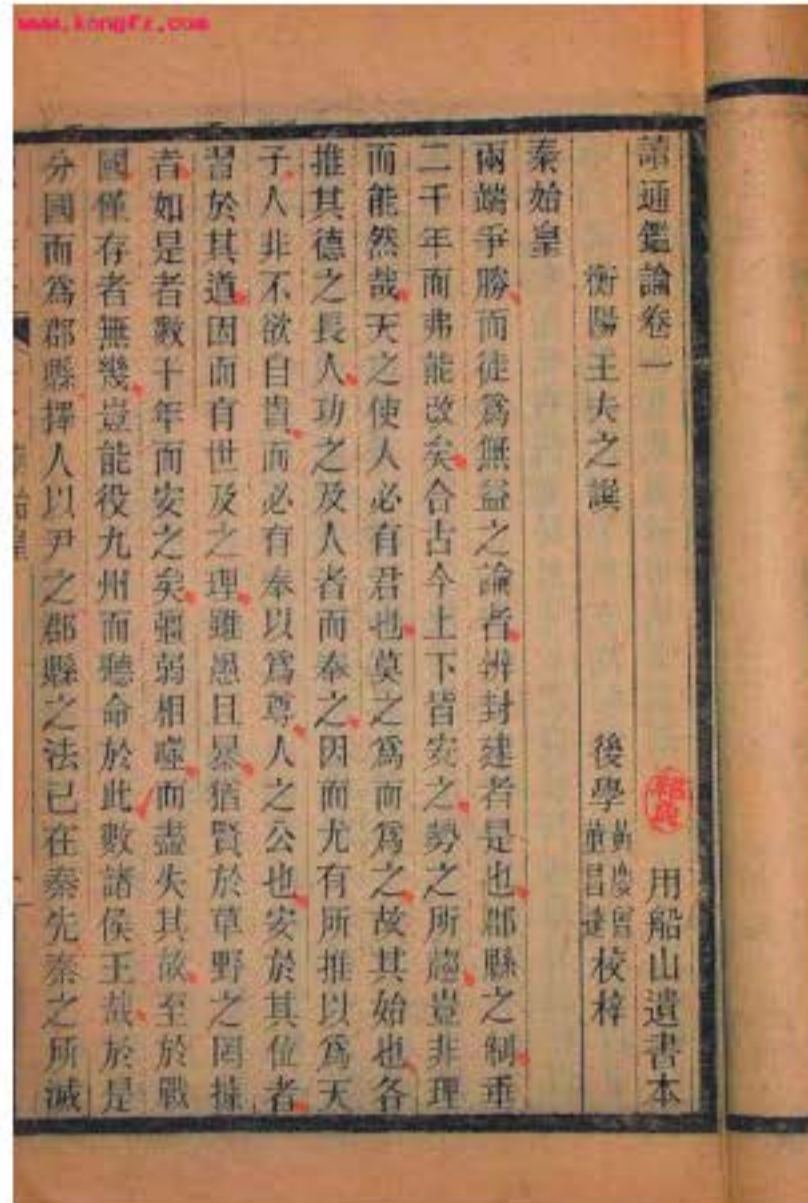 www.kongfz.com
讀通鑑論卷一
用船山遺書本
衡陽王夫之譔
後學
黃慶曾
校梓
秦始皇
兩端爭勝而徒爲無益之論者辨封建者是也郡縣之制垂
二千年而弗能改矣合古今上下皆安之勢之所趨豈非理
而能然哉天之使人必有君也莫之爲而爲之故其始也各
推其德之長人功之及人者而奉之因而尤有所推以爲天
子人非不欲自貴而必有奉以爲尊人之公也安於其位者
習於其道因而有世及之理雖愚且暴猶賢於草野之罔據
者如是者數十年而安之矣彊弱相噬而盡失其故至於戰
國僅存者無幾豈能役九州而聽命於此數諸侯王哉於是
分國而爲郡縣擇人以尹之郡縣之法已在秦先秦之所滅